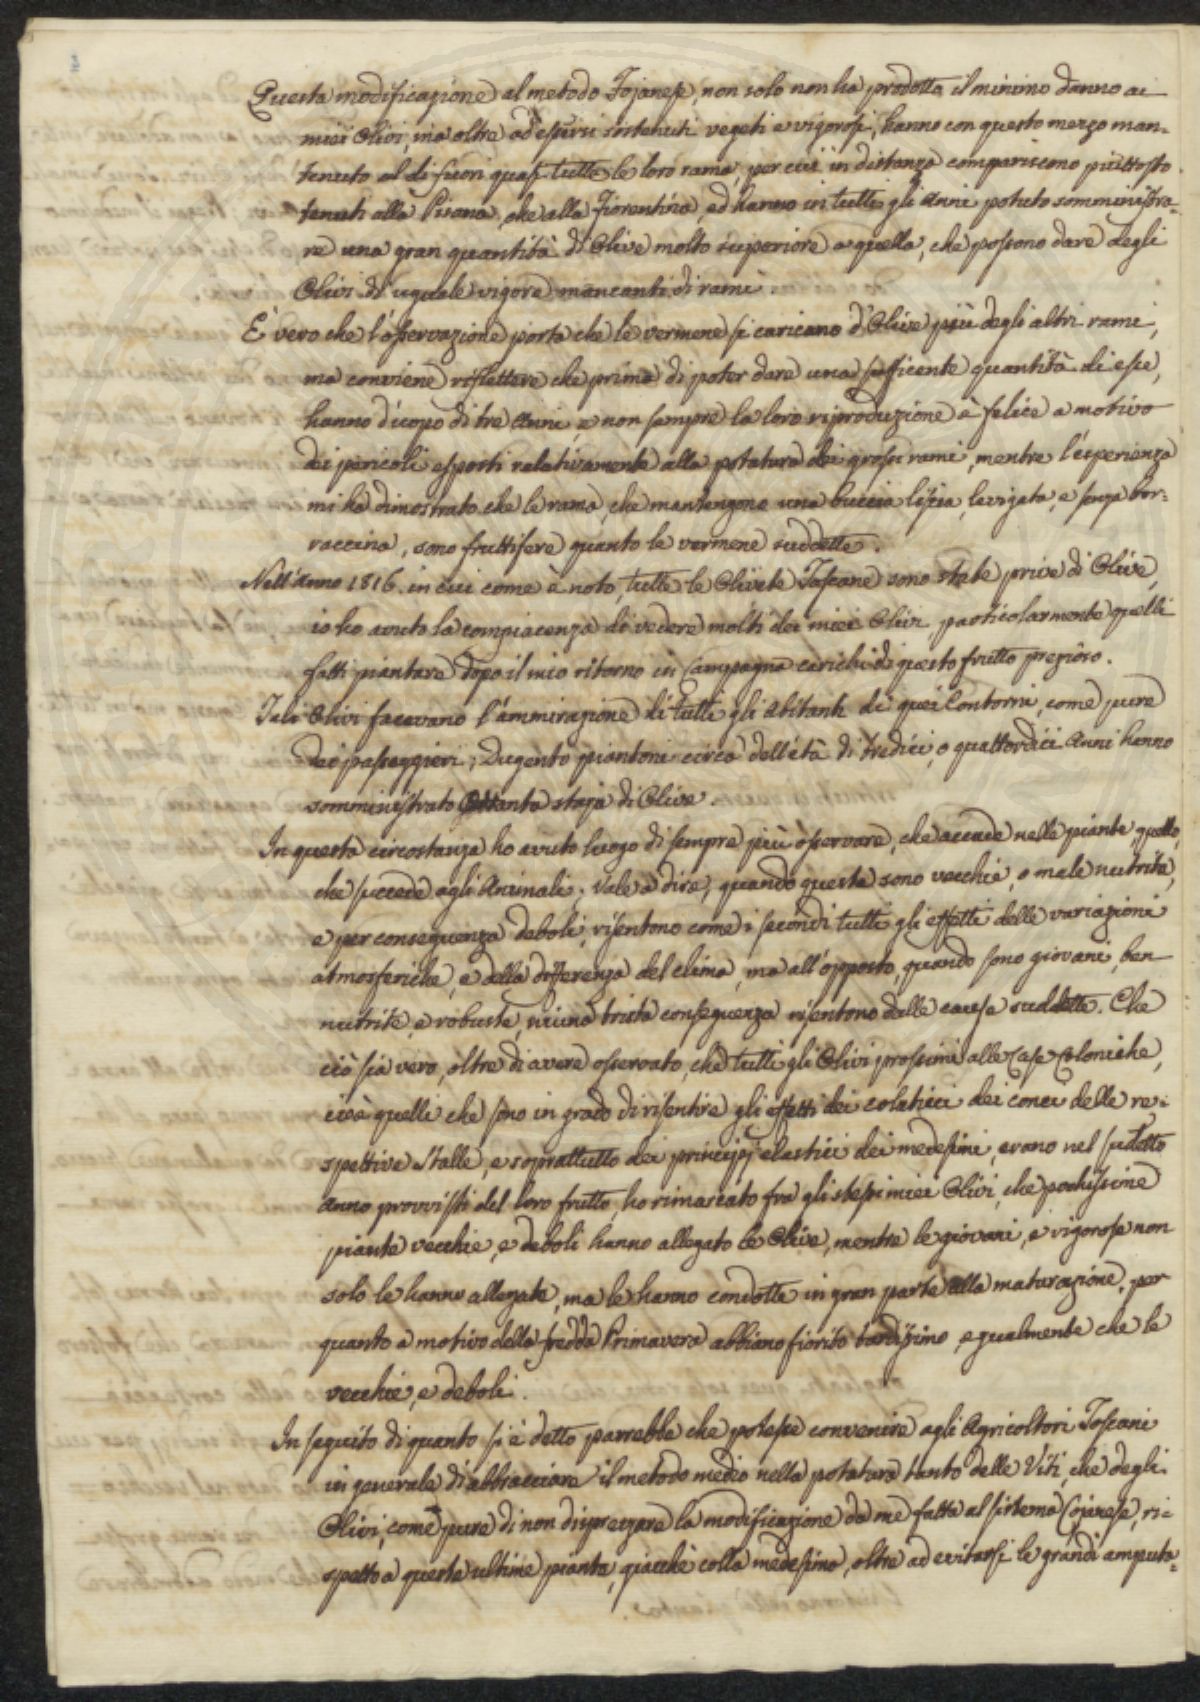 Questa modificazione al metodo Fojanese, non solo non ha prodotto il minimo danno ai
miei Olivi, ma oltre ad essersi sostenuti vegeti e vigorosi, hanno con questo mezzo man-
tenuto al di fuori quasi tutte le loro rama, per cui in distanza compariscono piuttosto
tenuti alla Pisana, che alla Fiorentina, ed hanno in tutti gli Anni potuto somministra-
re una gran quantità di Olive molto superiore a quella, che possono dare degli
Olivi di uguale vigore mancanti di rami.
È vero che l'osservazione porta che le vermene si caricano d'Olive più degli altri rami,
ma conviene riflettere che prima di poter dare una sufficente quantità di esse,
hanno d'uopo di tre Anni, e non sempre la loro riproduzione è felice a motivo
dei pericoli esposti relativamente alla potatura dei grossi rami, mentre l'esperienza
mi ha dimostrato che le rama, che mantengono una buccia liscia, levigata, e senza bor-
raccina, sono fruttifere quanto le vermene suddette.
Nell'Anno 1816. in cui come è noto, tutte le Olivete Toscane sono state prive di Olive,
io ho avuto la compiacenza di vedere molti dei miei Olivi, particolarmente quelli
fatti piantare dopo il mio ritorno in Campagna carichi di questo frutto prezioso.
Tali Olivi facevano l'ammirazione di tutti gli Abitanti di quei Contorni, come pure
dei passeggieri; Dugento piantoni circa dell'età di tredici, o quattordici Anni hanno
somministrato Ottanta staja di Olive.
In questa circostanza ho avuto luogo di sempre più osservare, che accade nelle piante, quello,
che succede agli Animali; vale a dire, quando queste sono vecchie, o male nutrite,
e per conseguenza deboli, risentono come i secondi tutti gli effetti delle variazioni
atmosferiche, e della differenza del clima, ma all'opposto, quando sono giovani, ben
nutrite, e robuste, niuna trista conseguenza risentono dalle cause suddette. Che
ciò sia vero, oltre di avere osservato, che tutti gli Olivi prossimi alle Case Coloniche,
cioè quelli che sono in grado di risentire gli effetti dei colaticci dei conci delle re-
spettive Stalle, e soprattutto dei principj elastici dei medesimi, erano nel sudetto
Anno provvisti del loro frutto, ho rimarcato fra gli stessi miei Olivi, che pochissime
piante vecchie, e deboli hanno allegato le Olive, mentre le giovani, e vigorose non
solo le hanno allegate, ma le hanno condotte in gran parte alla maturazione, per
quanto a motivo della fredda Primavera abbiano fiorito tardissimo, egualmente che le
vecchie, e deboli.
In seguito di quanto si è detto parrebbe che potesse convenire agli Agricoltori Toscani
in generale di abbracciare il metodo medio nella potatura tanto delle Viti, che degli
Olivi, come pure di non disprezzare la modificazione da me fatta al sistema Cojanese, ri-
spetto a queste ultime piante, giacchè colla medesima, oltre ad evitarsi le grandi amputa-